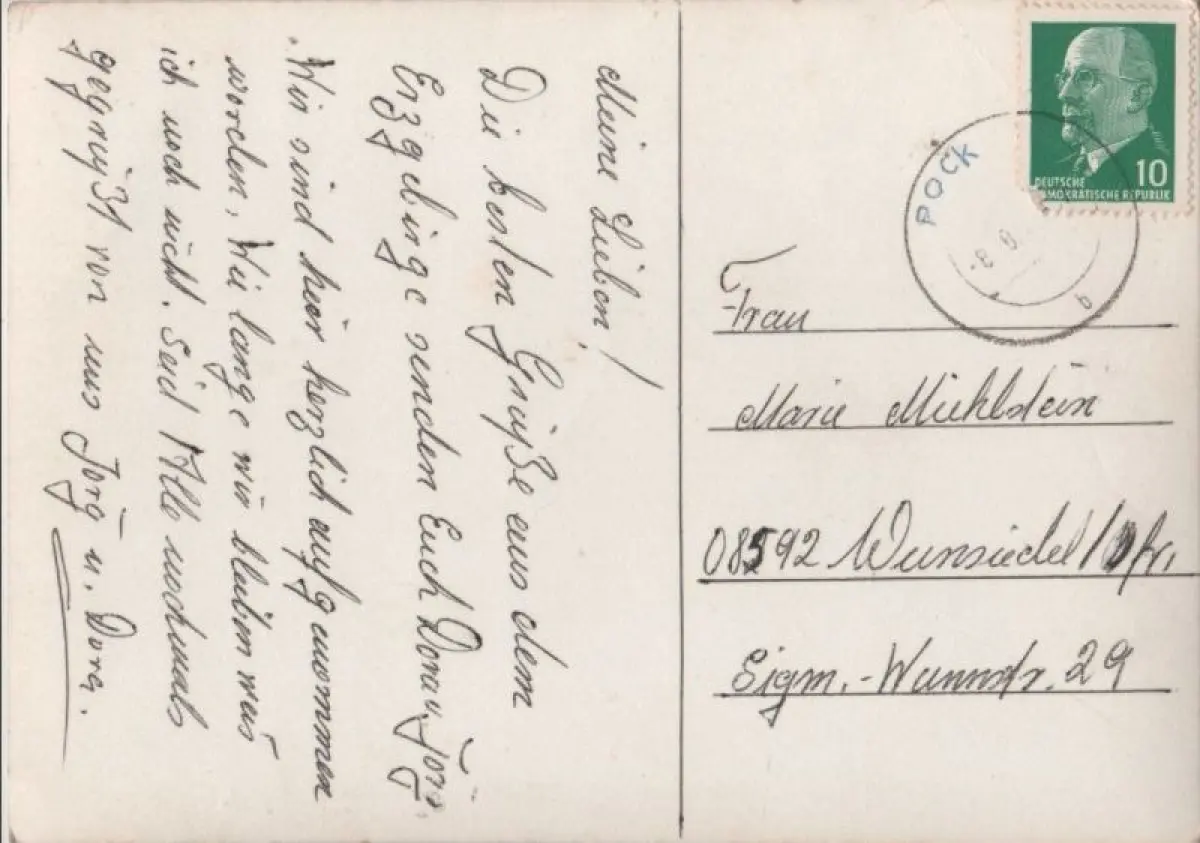 Meine Lieben!
Die besten Grüße aus dem
Erzgebirge senden Euch Dora u. Jörg.
Wir sind hier herzlich aufgenommen
worden, Wie lange wir bleiben weis
ich noch nicht. Seid Alle nochmals
gegrüßt von uns Jörg u. Dora.
DEUTSCHE
DEMOKRATISCHE REPUBLIK
10
POCK
b
Frau
Marie Mühlstein
08592 Wunsiedel/Ofr.
Sigm.-Wannstr. 29